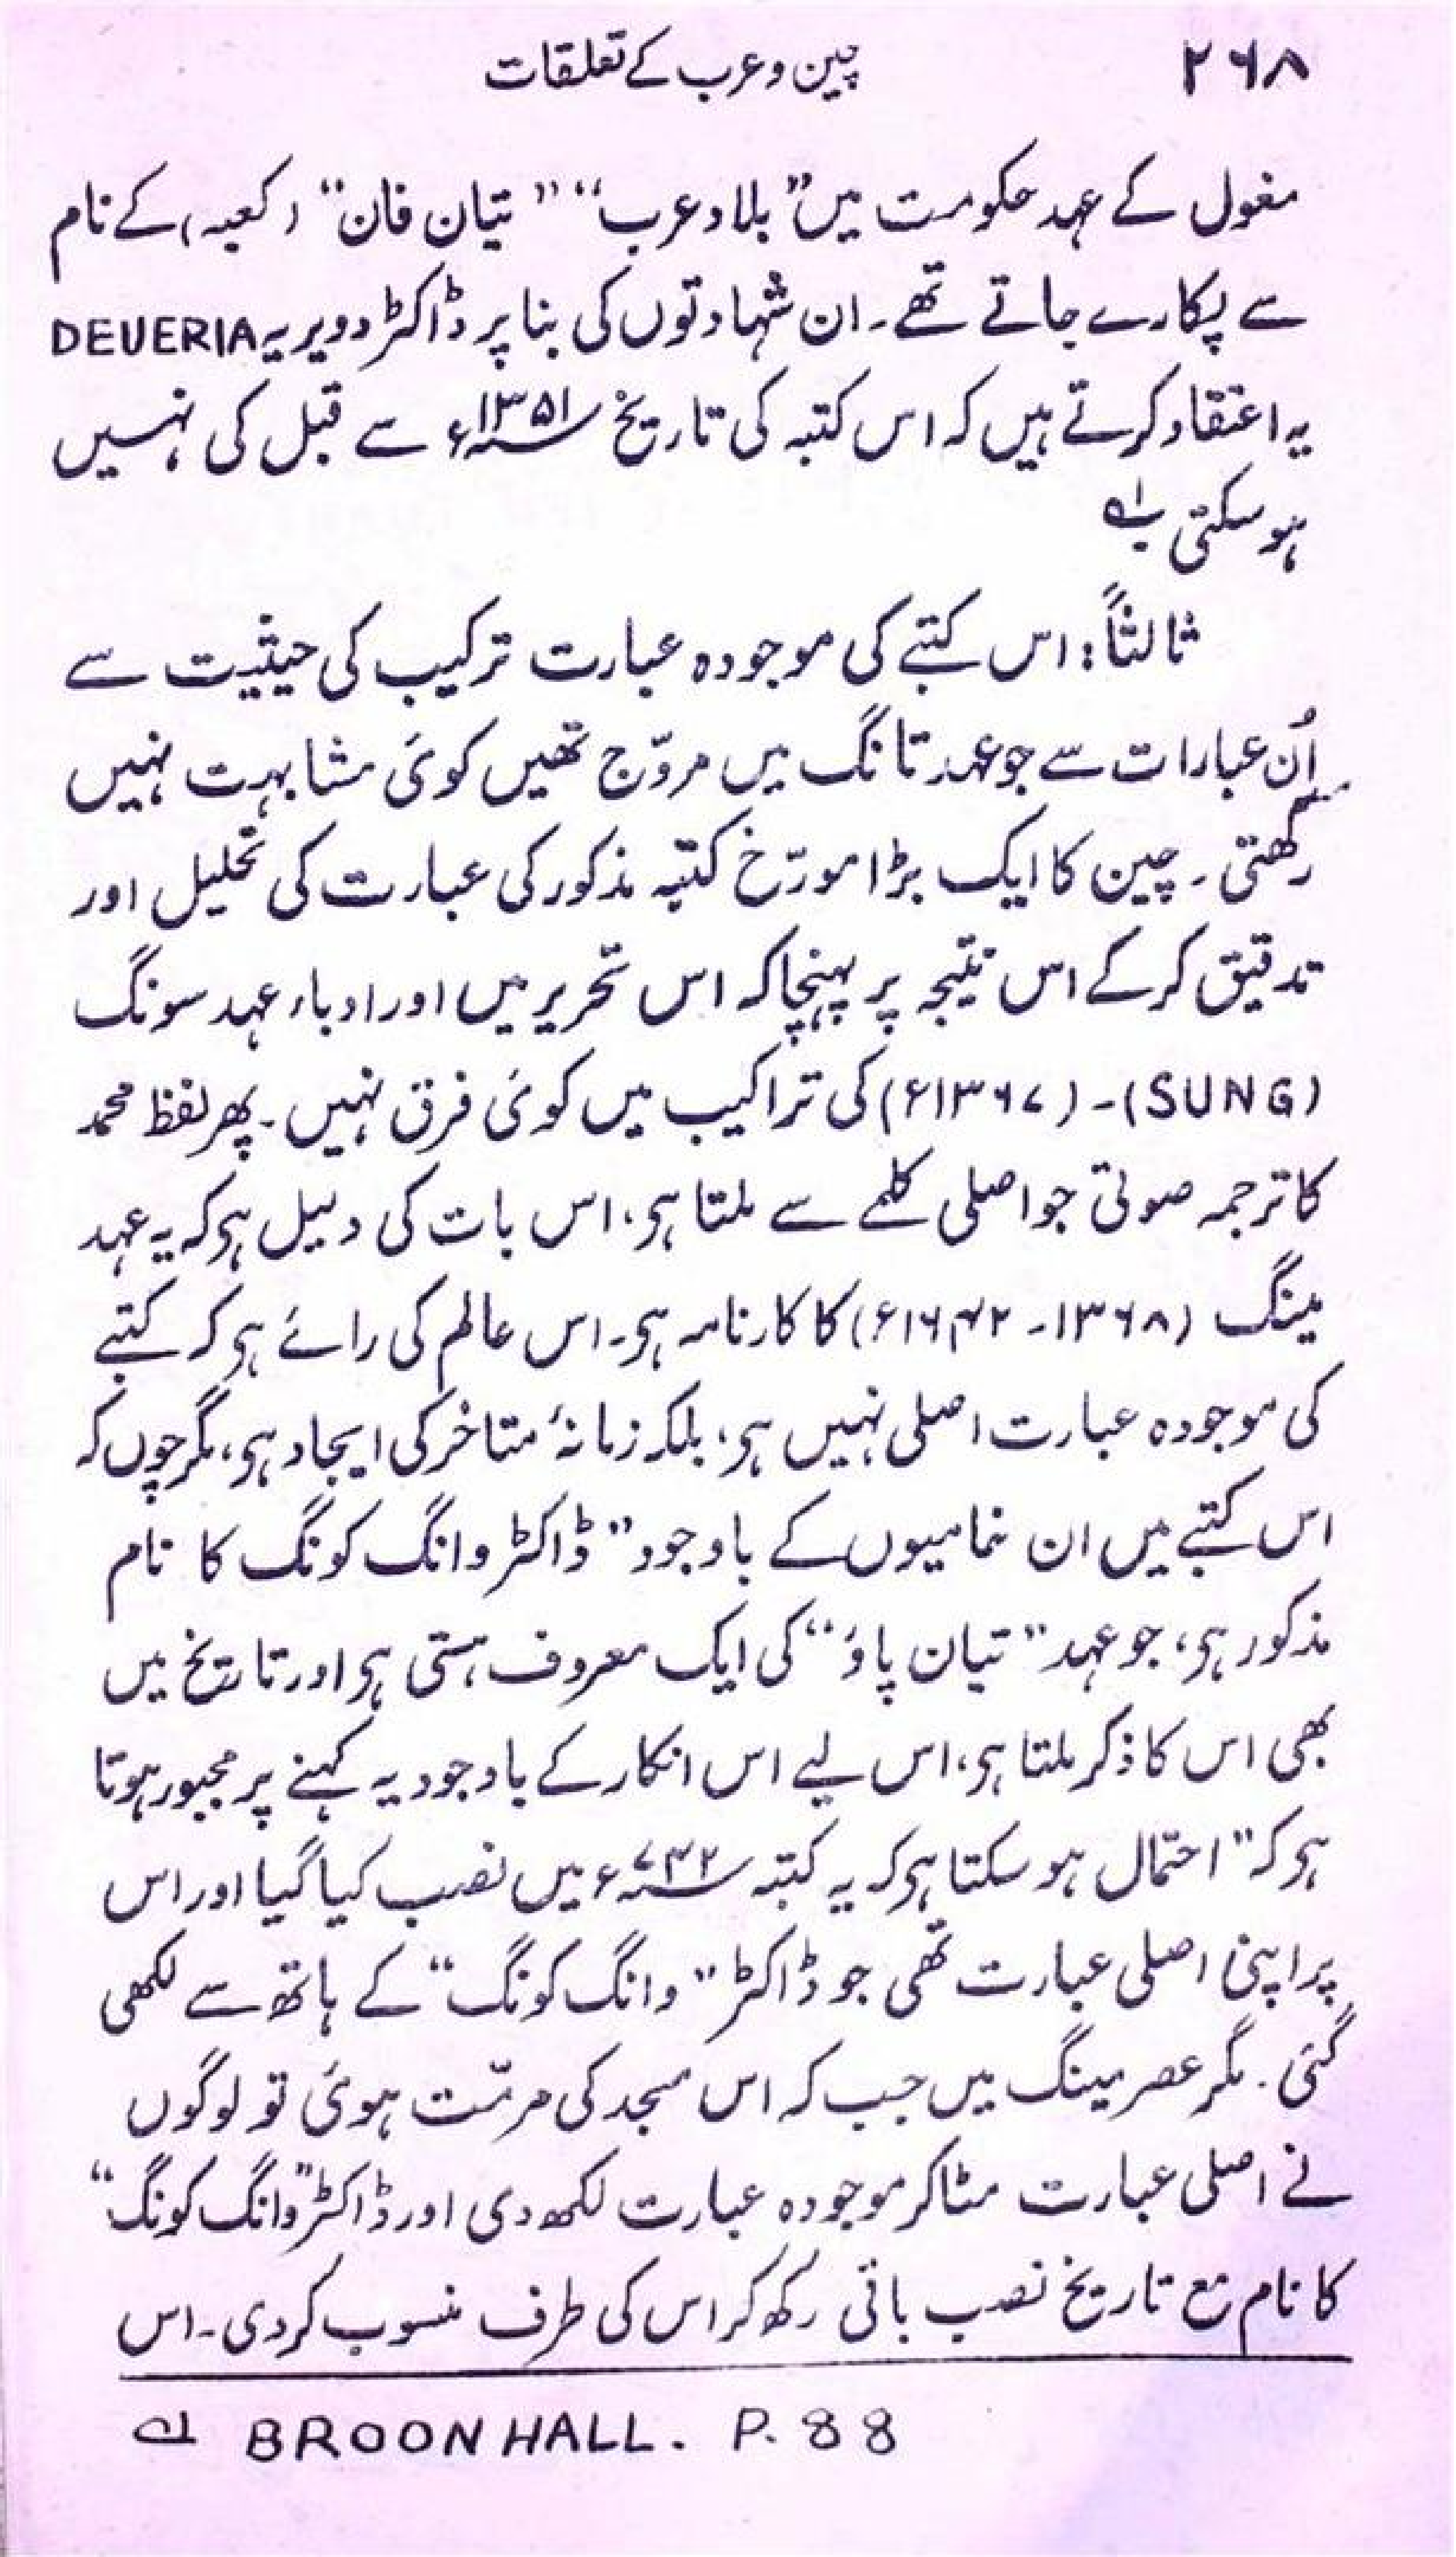 ۲۶۸ چین و عرب کے تعلقات
مغول کے عہد حکومت میں ”بلاد عرب“ ”تیان فان“ (کعبہ) کے نام
سے پکارے جاتے تھے۔ ان شہادتوں کی بنا پر ڈاکٹر دویریہ DEVERIA
یہ اعتقاد کرتے ہیں کہ اس کتبہ کی تاریخ ۱۳۵۱ء سے قبل کی نہیں
ہو سکتی ۱؎
ثالثاً: اس کتبے کی موجودہ عبارت ترکیب کی حیثیت سے
اُن عبارات سے جو عہد تانگ میں مروّج تھیں کوئی مشابہت نہیں
رکھتی۔ چین کا ایک بڑا مورّخ کتبہ مذکور کی عبارت کی تحلیل اور
تدقیق کرکے اس نتیجہ پر پہنچا کہ اس تحریر میں اور ادباء عہد سونگ
(SUNG)۔ (۱۳۶۷ء) کی تراکیب میں کوئی فرق نہیں۔ پھر لفظ محمد
کا ترجمہ صوتی جو اصلی کلمے سے ملتا ہی، اس بات کی دلیل ہی کہ یہ عہد
مینگ (۱۳۶۸۔ ۱۶۴۲ء) کا کارنامہ ہی۔ اس عالم کی رائے ہی کہ کتبے
کی موجودہ عبارت اصلی نہیں ہی، بلکہ زمانۂ متاخر کی ایجاد ہی، مگر چوں کہ
اس کتبے میں ان خامیوں کے باوجود ”ڈاکٹر وانگ کونگ کا نام
مذکور ہی، جو عہد ”تیان پاؤ“ کی ایک معروف ہستی ہی اور تاریخ میں
بھی اس کا ذکر ملتا ہی، اس لیے اس انکار کے باوجود یہ کہنے پر مجبور ہوتا
ہی کہ ”احتمال ہو سکتا ہی کہ یہ کتبہ ۷۴۲ء میں نصب کیا گیا اور اس
پر اپنی اصلی عبارت تھی جو ڈاکٹر ”وانگ کونگ“ کے ہاتھ سے لکھی
گئی۔ مگر عصر مینگ میں جب کہ اس مسجد کی مرمّت ہوئی تو لوگوں
نے اصلی عبارت مٹا کر موجودہ عبارت لکھ دی اور ڈاکٹر ”وانگ کونگ“
کا نام مع تاریخ نصب باقی رکھ کر اس کی طرف منسوب کر دی۔ اس
۱؎ BROON HALL. P. 88